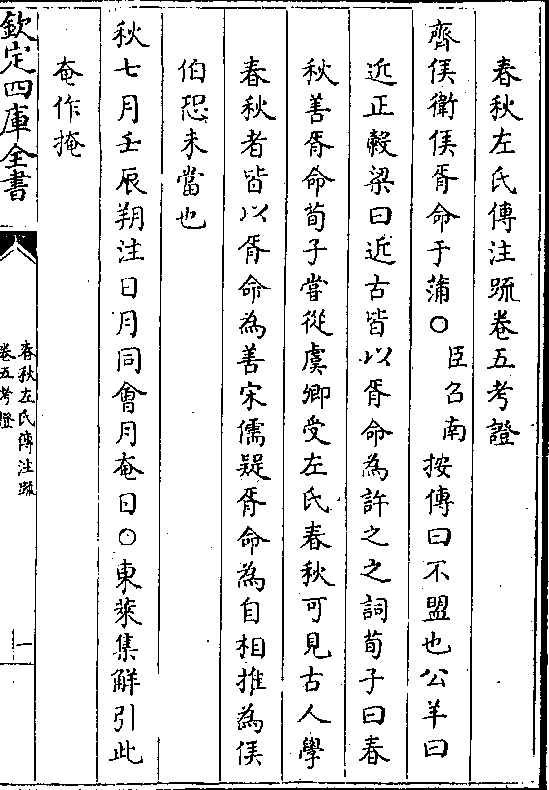 春秋左氏傳注䟽卷五考證
齊侯衛侯胥命于蒲○臣召南按傳曰不盟也公羊曰
近正穀梁曰近古皆以胥命為許之之詞荀子曰春
秋善胥命荀子嘗從虞卿受左氏春秋可見古人學
春秋者皆以胥命為善宋儒疑胥命為自相推為侯
伯恐未當也
秋七月壬辰朔注日月同會月奄日○東萊集解引此
奄作掩
欽定四庫全書
春秋左氏傳注䟽
卷五考證
一